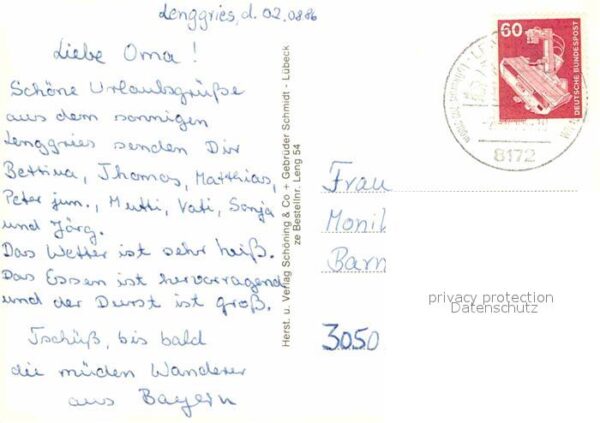 Lenggries, d. 02.0886
Liebe Oma!
Schöne Urlaubsgrüße
aus dem sonnigen
Lenggries senden Dir
Bettina, Thomas, Matthias,
Peter jun., Mutti, Vati, Sonja
und Jörg.
Das Wetter ist sehr heiß.
Das Essen ist hervorragend
und der Durst ist groß.
Tschüß, bis bald
die müden Wanderer
aus Bayern
Herst. u. Verlag Schöning & Co + Gebrüder Schmidt - Lübeck
ze Bestellnr. Leng 54
60
DEUTSCHE BUNDESPOST
8172
Frau
Moni
Barn
3050
privacy protection
Datenschutz